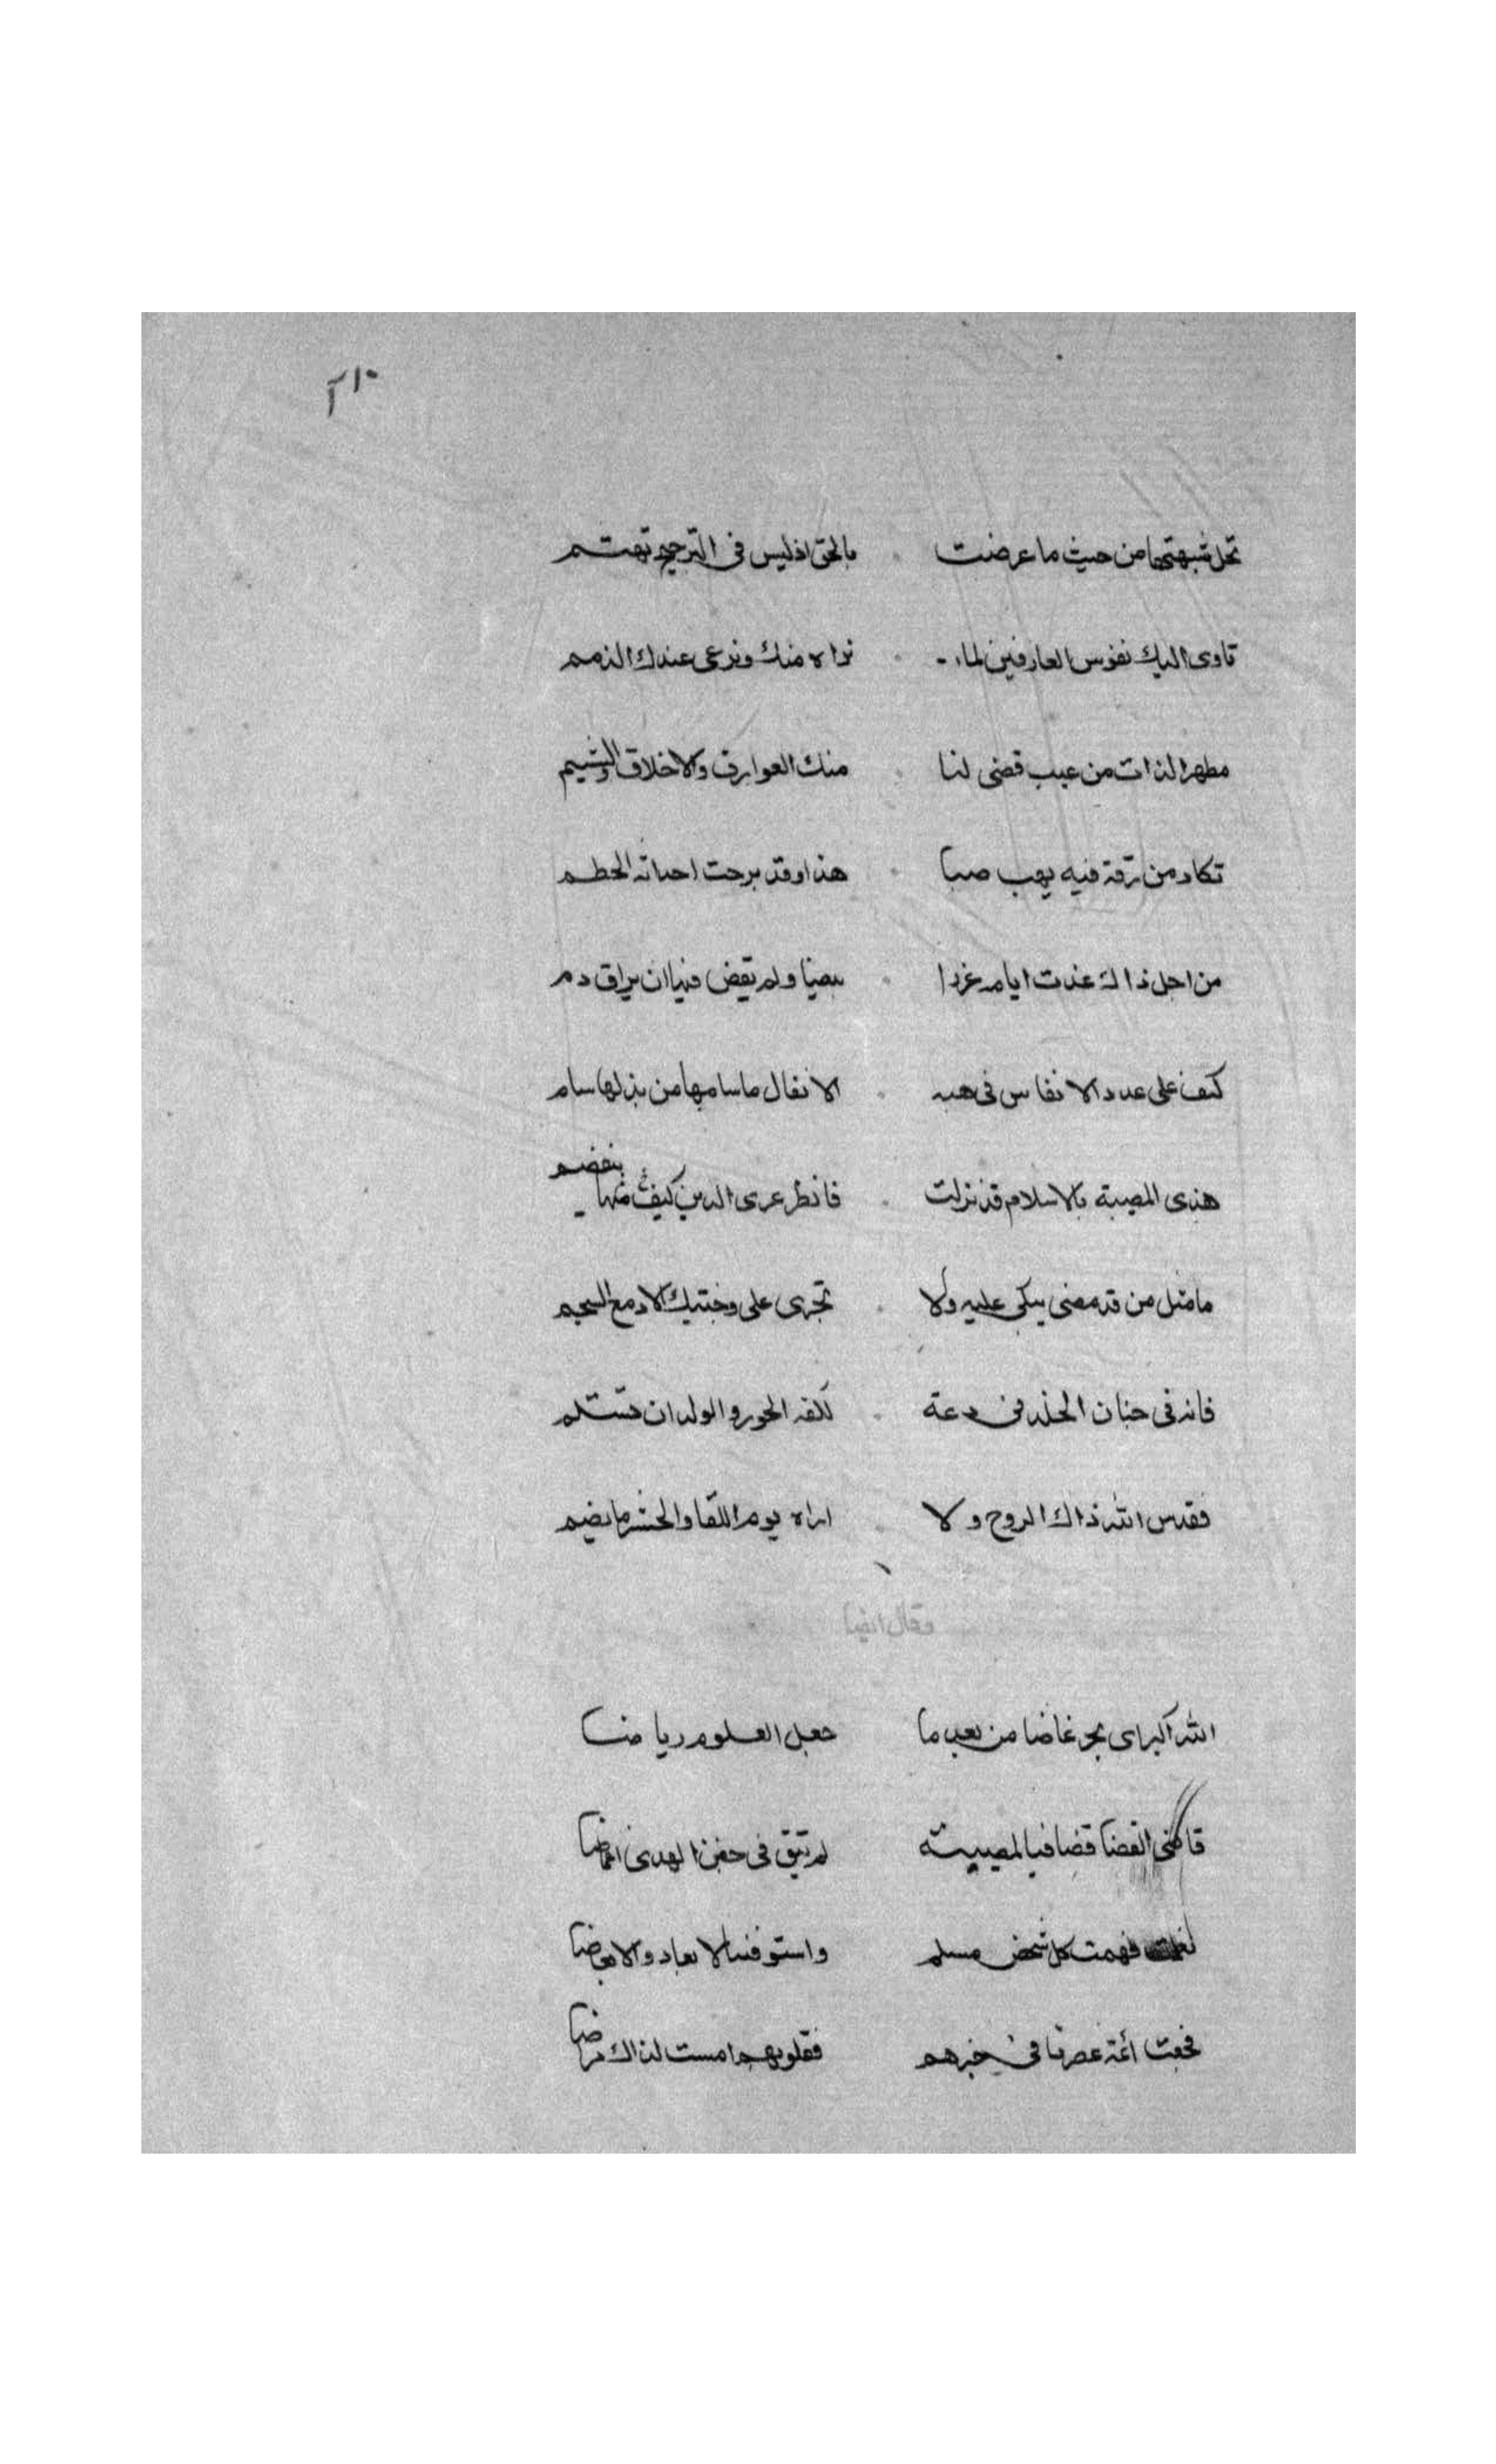 ٢١٠
تحل شبهتها من حيث ما عرضت بالحق اذ ليس فى الترجيح تهتم
تاوى اليك نفوس العارفين لما نراه منك وترعى عندك الذمم
مطهر الذات من عيب قضى لنا منك العوارف والاخلاق والشيم
تكاد من رقة فيه يهب صبا هذا وقد برحت احيانه الحطم
من اجل ذاك غدت ايامه غررا بيضا ولم يقض فيها ان يراق دم
كيف على عدد الانفاس فى هبه الانفال ما سامها من بذلها سام
هذى المصيبة بالاسلام قد نزلت فانظر عرى الدين كيف منها ينفضم
ما مثل من قد مضى يبكى عليه ولا تجرى على وجنتيك الادمع السجم
فانه فى جنان الخلد فى دعة تلقه الحور والولدان تستلم
فقدس الله ذاك الروح ولا اراه يوم اللقا والحشر ما يضم
وقال ايضا
الله اكبر اى بحر غاضا من بعد ما جعل العلوم رياضا
القضا قضا فيا لمصيبته لم تبق فى جفن الهدى اغماضا
فهمت كل شخص مسلم واستوفت الابعاد والابعاضا
فجعت أئمة عصرنا فى خبرهم فقلوبهم امست لذاك مراضا